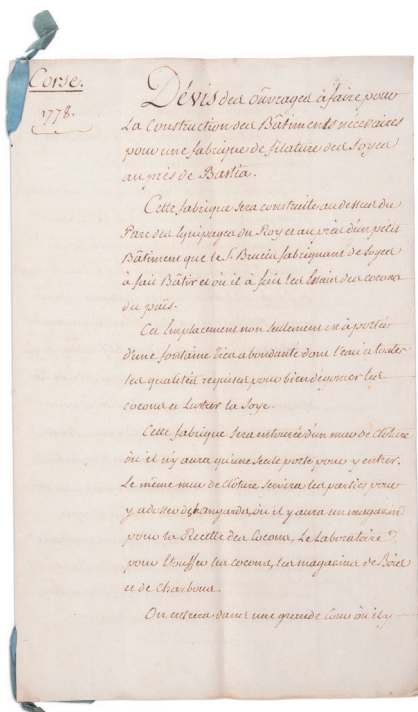 Corse.
1778.
Dévis des oûvrages à faire pour
La Construction des Bâtiments nécessaires
pour une fabrique de filature des Soyes
auprès de Bastia.
Cette fabrique sera construite au dessus du
Parc des Equipages du Roy et auprès d'un petit
Bâtiment que le S. fabriquant de Soyes
à fait Bâtir et où il à fait les Essais des cocons
du païs.
Cet Emplacement non seulement est à portée
d'une fontaine très abondante dont l'eau à toutes
les qualités requises pour bien dégomer les
cocons et Lustrer la Soye.
Cette fabrique sera entourée d'un mur de Clôture
où il n'y aura qu'une seule porte pour y entrer.
Le même mur de Clôture servira les parties pour
y adosser des hangards, où il y aura un magazin
pour la Recette des Cocons, Le Laboratoire
pour étouffer les cocons, les magazins de Bois
et de Charbons.
On entrera dans une grande Cour où il y